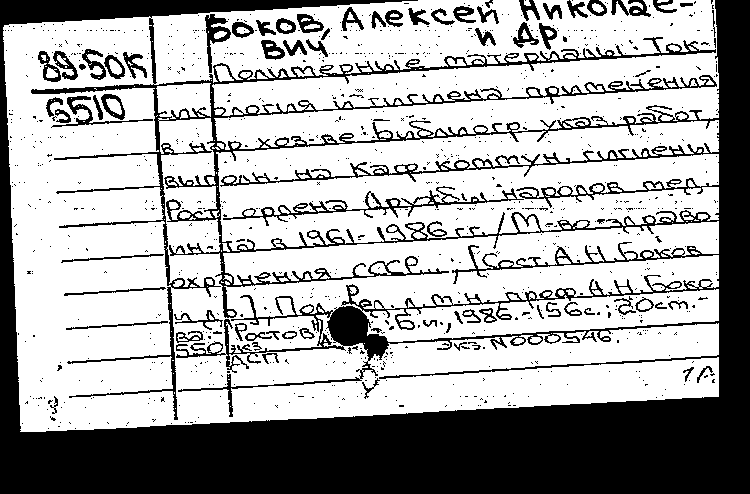 Боков, Алексей Николае-
вич и др.
89-50К
6510
Полимерные материалы: Ток-
сикология и гигиена применения
в нар. хоз-ве: Библиогр. указ. работ,
выполн. на Каф. коммун. гигиены
Рост. ордена Дружбы народов мед.
ин-та в 1961-1986 гг. / М-во здраво-
охранения СССР...; [Сост. А.Н. Боков
и др.]; Под ред. д.м.н., проф. А.Н. Боко
ва.- Ростов н/Д : Б.и., 1986.-156с.; 20см.-
550 экз. экз. N000546.
ДСП.
1А.